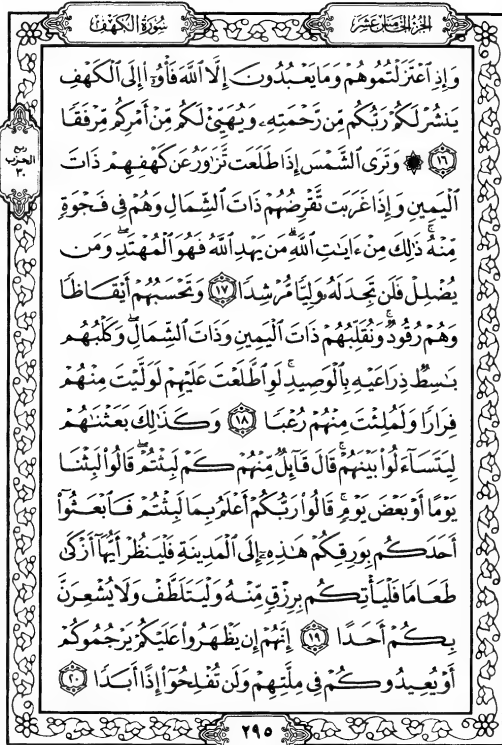 الجزء الخامس عشر
سورة الكهف
وَإِذِ ٱعۡتَزَلۡتُمُوهُمۡ وَمَا يَعۡبُدُونَ إِلَّا ٱللَّهَ فَأۡوُۥٓاْ إِلَى ٱلۡكَهۡفِ
يَنشُرۡ لَكُمۡ رَبُّكُم مِّن رَّحۡمَتِهِۦ وَيُهَيِّئۡ لَكُم مِّنۡ أَمۡرِكُم مِّرۡفَقٗا
ربع
الحزب
٣٠
١٦ ۞ وَتَرَى ٱلشَّمۡسَ إِذَا طَلَعَت تَّزَٰوَرُ عَن كَهۡفِهِمۡ ذَاتَ
ٱلۡيَمِينِ وَإِذَا غَرَبَت تَّقۡرِضُهُمۡ ذَاتَ ٱلشِّمَالِ وَهُمۡ فِي فَجۡوَةٖ
مِّنۡهُۚ ذَٰلِكَ مِنۡ ءَايَٰتِ ٱللَّهِۗ مَن يَهۡدِ ٱللَّهُ فَهُوَ ٱلۡمُهۡتَدِۖ وَمَن
يُضۡلِلۡ فَلَن تَجِدَ لَهُۥ وَلِيّٗا مُّرۡشِدٗا ١٧ وَتَحۡسَبُهُمۡ أَيۡقَاظٗا
وَهُمۡ رُقُودٞۚ وَنُقَلِّبُهُمۡ ذَاتَ ٱلۡيَمِينِ وَذَاتَ ٱلشِّمَالِۖ وَكَلۡبُهُم
بَٰسِطٞ ذِرَاعَيۡهِ بِٱلۡوَصِيدِۚ لَوِ ٱطَّلَعۡتَ عَلَيۡهِمۡ لَوَلَّيۡتَ مِنۡهُمۡ
فِرَارٗا وَلَمُلِئۡتَ مِنۡهُمۡ رُعۡبٗا ١٨ وَكَذَٰلِكَ بَعَثۡنَٰهُمۡ
لِيَتَسَآءَلُواْ بَيۡنَهُمۡۚ قَالَ قَآئِلٞ مِّنۡهُمۡ كَمۡ لَبِثۡتُمۡۖ قَالُواْ لَبِثۡنَا
يَوۡمًا أَوۡ بَعۡضَ يَوۡمٖۚ قَالُواْ رَبُّكُمۡ أَعۡلَمُ بِمَا لَبِثۡتُمۡ فَٱبۡعَثُوٓاْ
أَحَدَكُم بِوَرِقِكُمۡ هَٰذِهِۦٓ إِلَى ٱلۡمَدِينَةِ فَلۡيَنظُرۡ أَيُّهَآ أَزۡكَىٰ
طَعَامٗا فَلۡيَأۡتِكُم بِرِزۡقٖ مِّنۡهُ وَلۡيَتَلَطَّفۡ وَلَا يُشۡعِرَنَّ
بِكُمۡ أَحَدًا ١٩ إِنَّهُمۡ إِن يَظۡهَرُواْ عَلَيۡكُمۡ يَرۡجُمُوكُمۡ
أَوۡ يُعِيدُوكُمۡ فِي مِلَّتِهِمۡ وَلَن تُفۡلِحُوٓاْ إِذًا أَبَدٗا ٢٠
٢٩٥